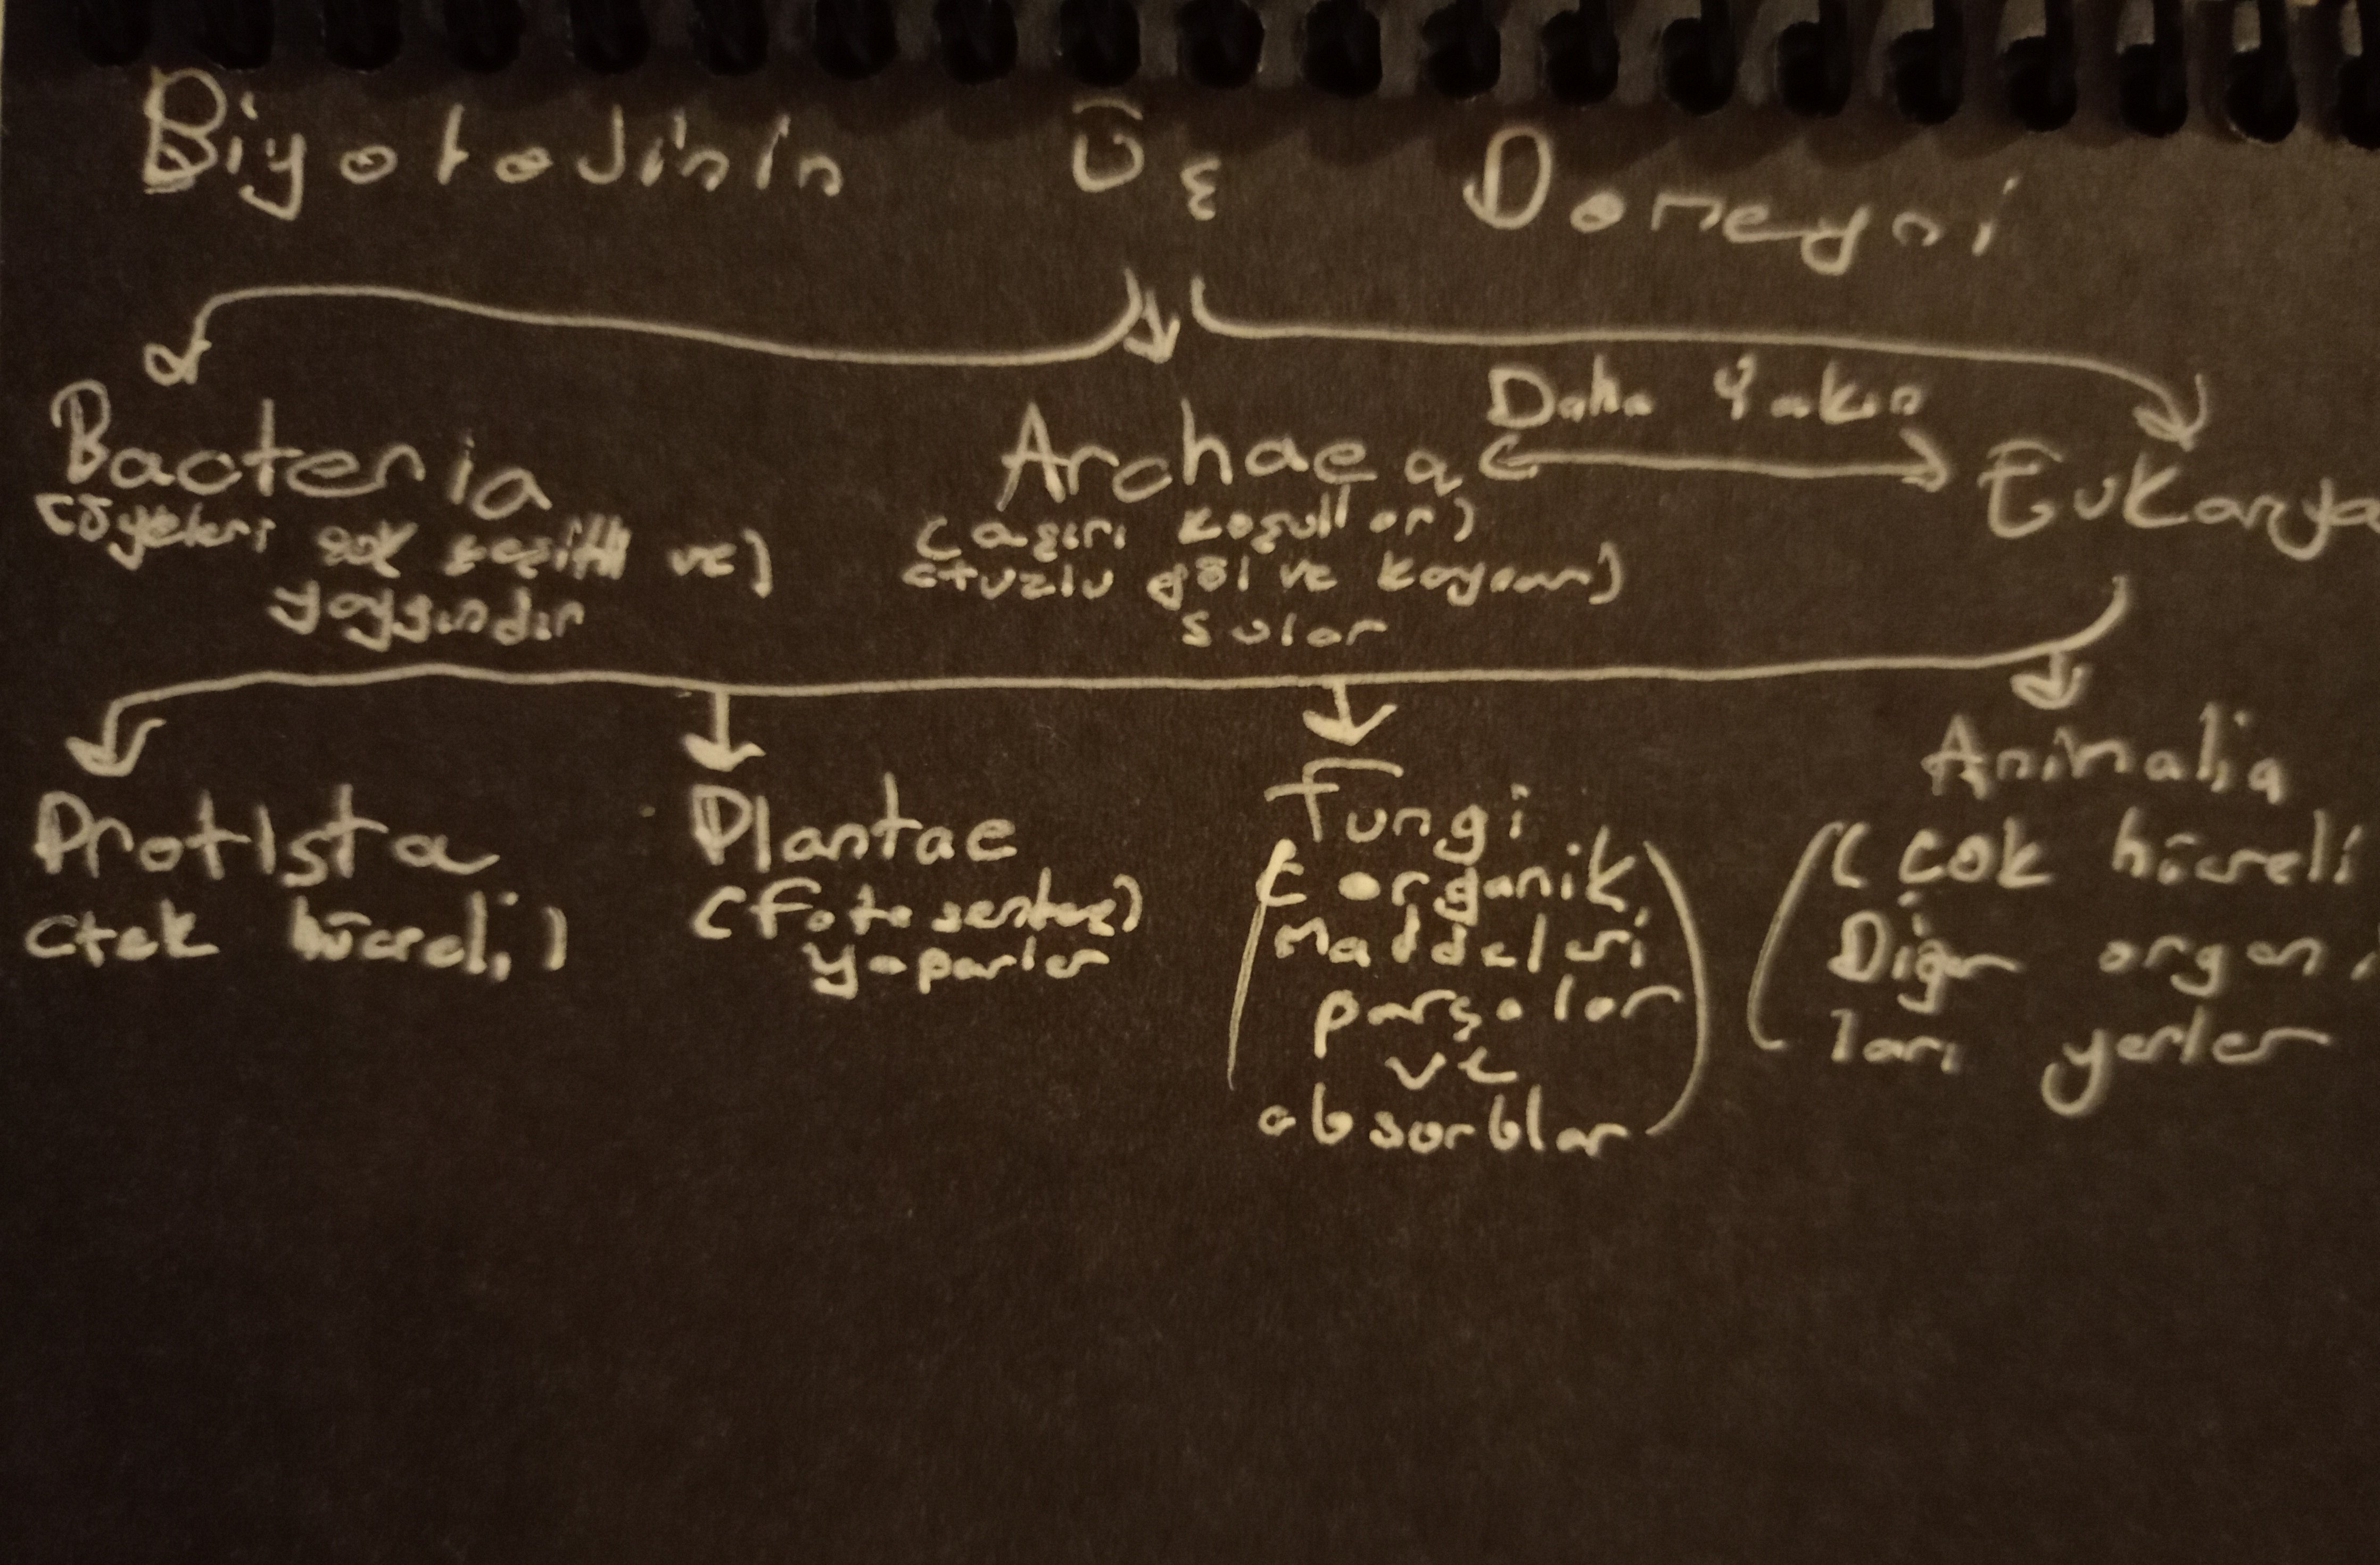 Biyolojinin Üç Domeyni
Daha Yakın
Bacteria Archaea Eukarya
(üyeleri çok çeşitli ve)
yaygındır
(aşırı koşullar)
(tuzlu göl ve kaynar)
sular
Protista
(tek hücreli)
Plantae
(fotosentez)
yaparlar
Fungi
(organik
maddeleri
parçalar
ve
absorblar
Animalia
(çok hücreli
Diğer
ları yerler